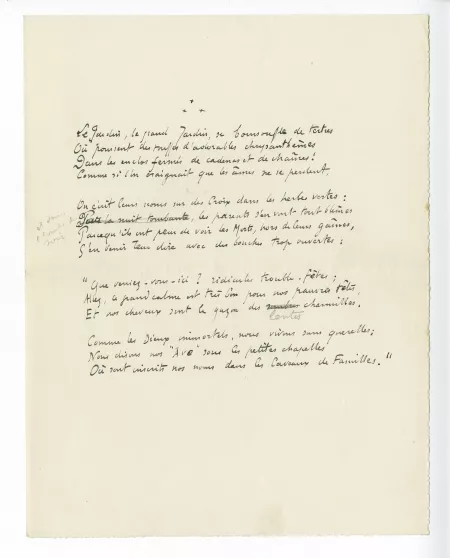 Le Jardin, le grand Jardin, se boursoufle de tertres
Où poussent des touffes d'adorables chrysanthèmes
Dans les enclos fermés de cadenas et de chaînes!
Comme si l'on craignait que les âmes ne se perdent.
On écrit leurs noms sur des Croix dans les herbes vertes:
la nuit tombante, les parents s'en vont tout blêmes
Parcequ'ils ont peur de voir les Morts, hors de leurs gaînes,
S'en venir leur dire avec des bouches trop ouvertes:
"Que veniez-vous ici? ridicules trouble-fêtes;
Allez, le grand calme est très bon pour nos pauvres têtes,
Et nos cheveux sont le gazon des charmilles.
lentes
Comme les Dieux immortels, nous vivons sans querelles;
Nous disons nos "Ave" sous les petites chapelles
Où sont inscrits nos noms dans les Caveaux de Familles."